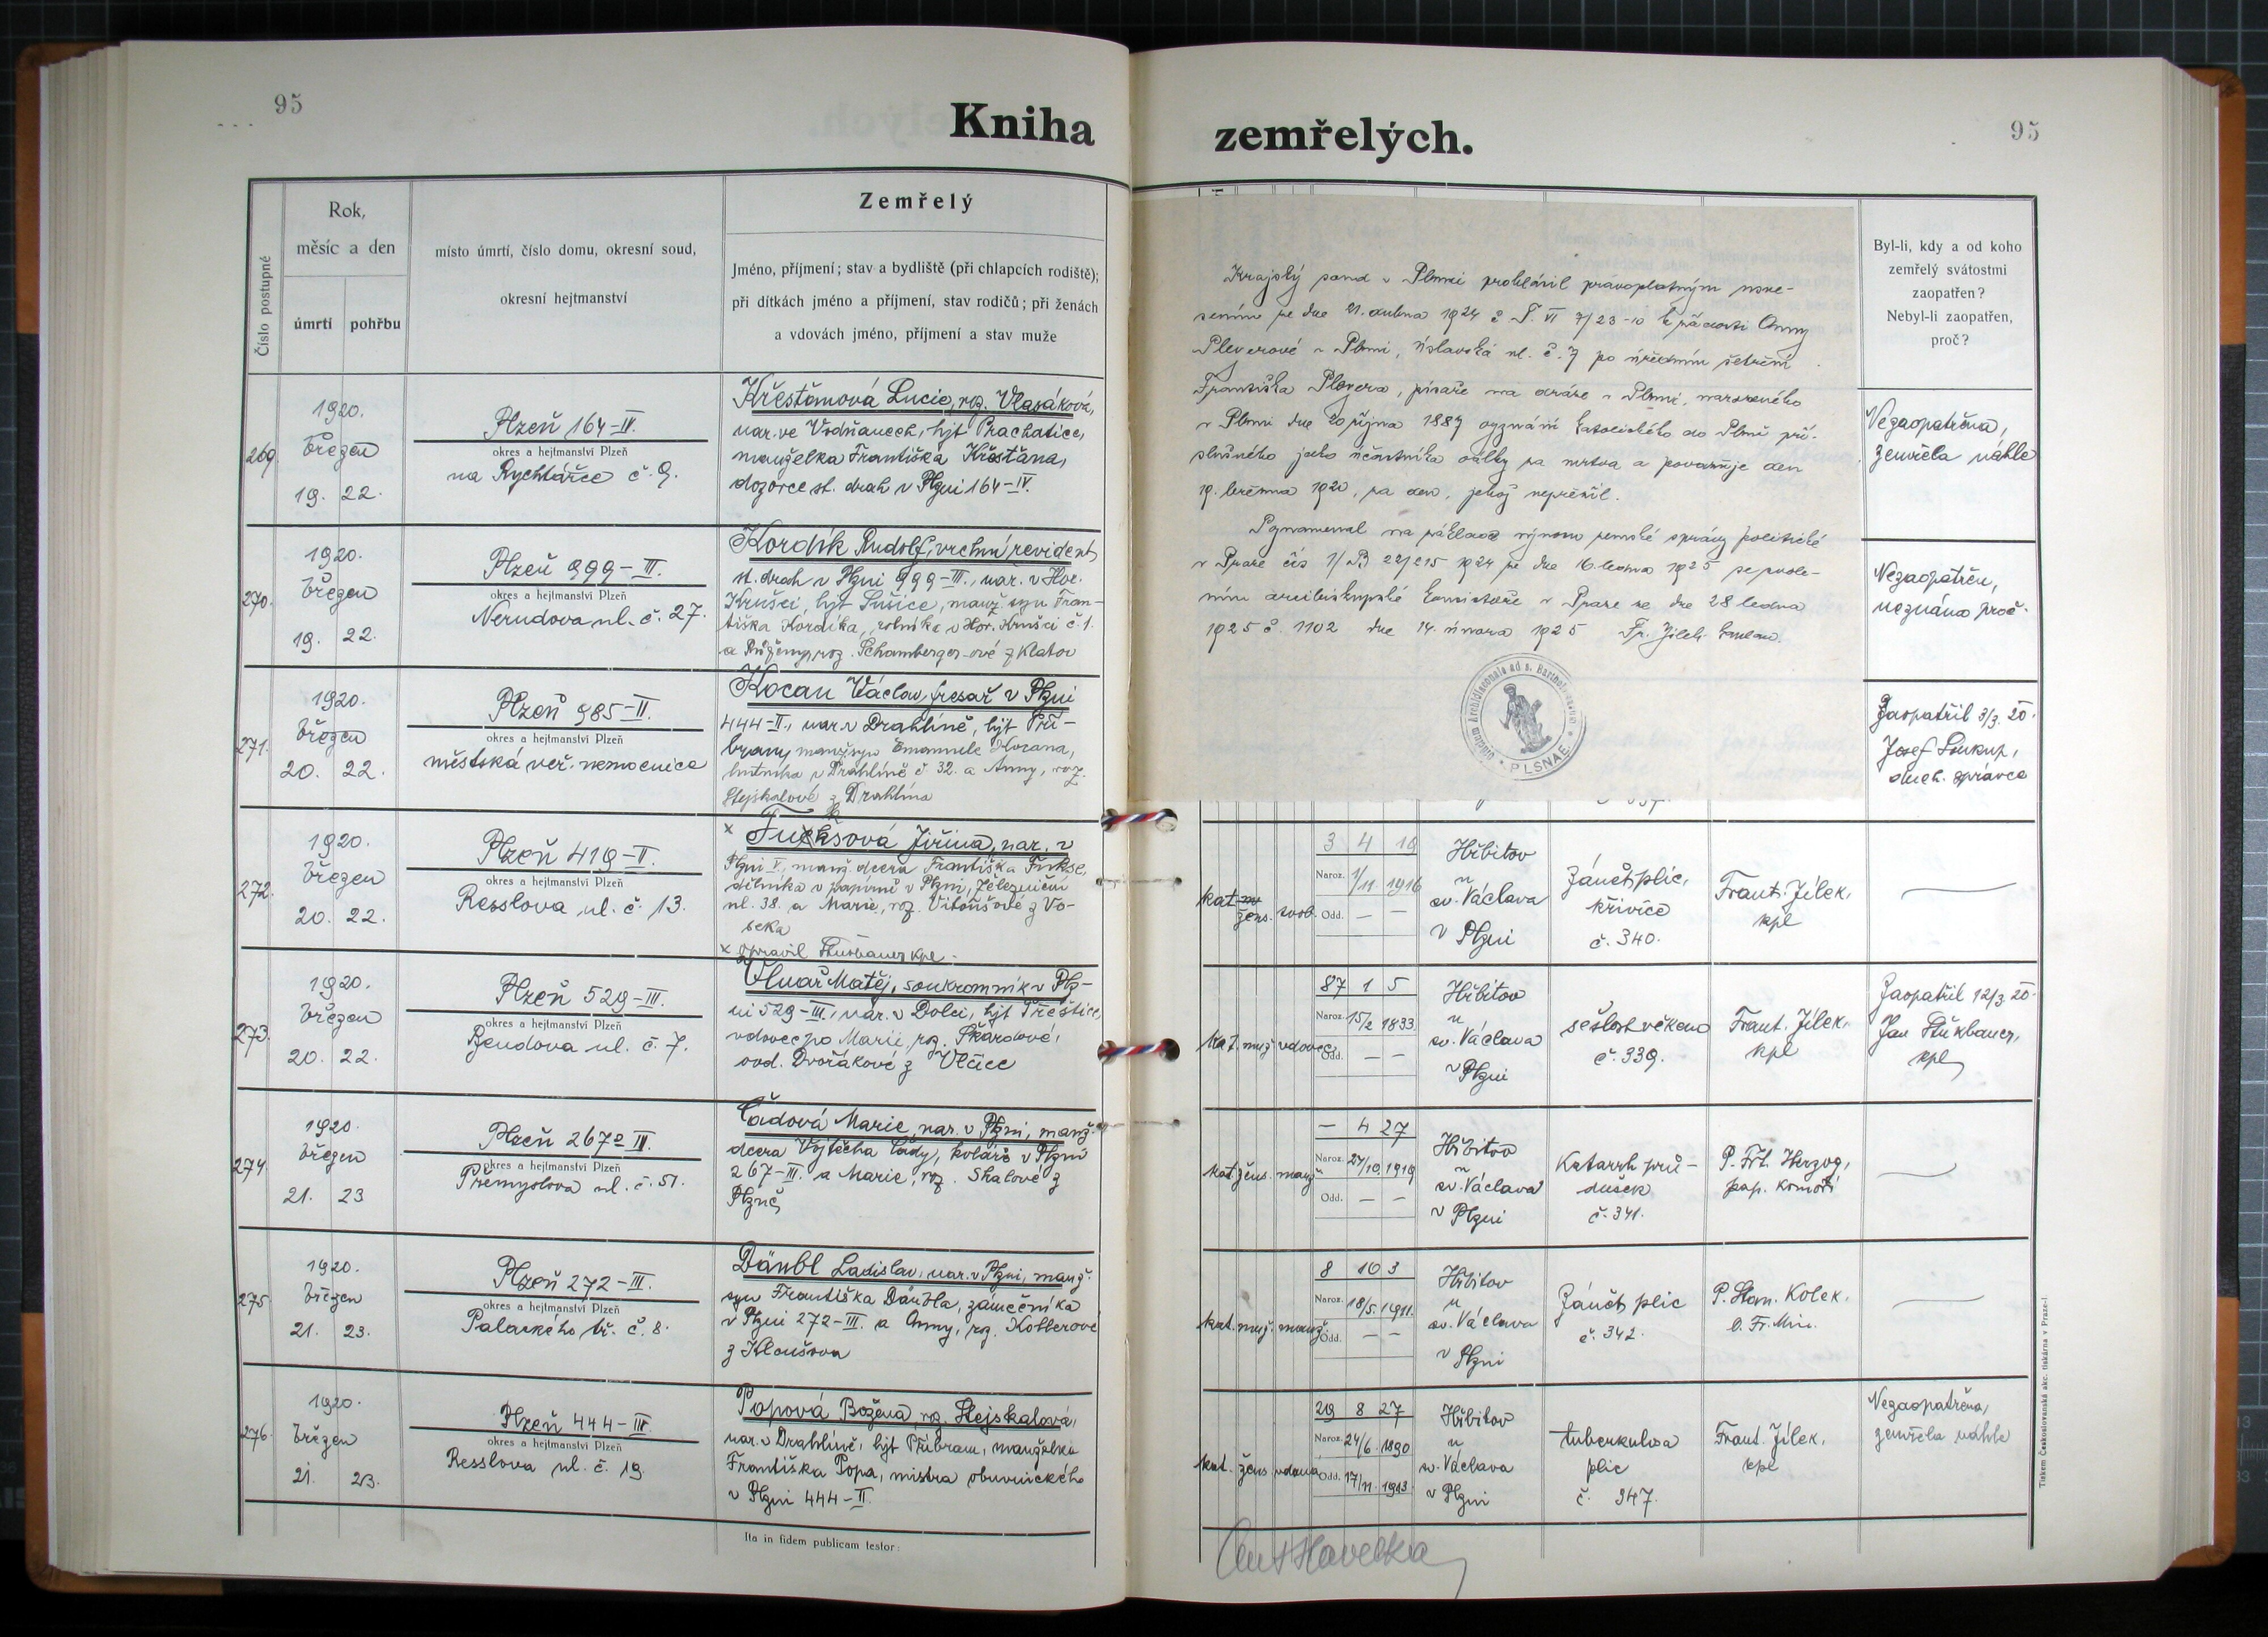 95
Kniha
zemřelých.
95
Číslo postupné
Rok,
měsíc a den
úmrtí
pohřbu
místo úmrtí, číslo domu, okresní soud,
okresní hejtmanství
Zemřelý
Jméno, příjmení; stav a bydliště (při chlapcích rodiště);
při dítkách jméno a příjmení, stav rodičů; při ženách
a vdovách jméno, příjmení a stav muže
269.
1920.
Březen
19. 22.
Plzeň 164-IV.
okres a hejtmanství Plzeň
na Rychtářce č. 9.
Křesťanová Lucie, roz. Vlasáková,
nar. ve Vodňanech, hjt Prachatice,
manželka Františka Křesťana,
dozorce st. drah v Plzni 164-IV.
270.
1920.
Březen
19. 22.
Plzeň 999-III.
okres a hejtmanství Plzeň
Nerudova ul. č. 27.
Kordík Rudolf, vrchní revident
st. drah v Plzni 999-III., nar. v Hor.
Krušci, hjt Sušice, manž. syn Fran-
tiška Kordíka, rolníka v Hor. Krušci č. 1.
a Růženy, roz. Schamberger-ové z Klatov
271.
1920.
Březen
20. 22.
Plzeň 985-II.
okres a hejtmanství Plzeň
městská veř. nemocnice
Kocan Václav, fresař v Plzni
444-II., nar. v Drahlíně, hjt Pří-
bram, manž. syn Emanuele Kocana,
hutníka v Drahlíně č. 32. a Anny, roz.
Stejskalové z Drahlína
272.
1920.
Březen
20. 22.
Plzeň 419-II.
okres a hejtmanství Plzeň
Resslova ul. č. 13.
x Fuksová Jiřina, nar. v
Plzni V., manž. dcera Františka Fukse,
dělníka v papírně v Plzni, Železniční
ul. 38. a Marie, roz. Vitoušové z Vo-
seka
x opravil Stuchbauer kpl.
273.
1920.
Březen
20. 22.
Plzeň 529-III.
okres a hejtmanství Plzeň
Bendova ul. č. 7.
Matěj, soukromník v Plz-
ni 529-III., nar. v Dolci, hjt Přeštice,
vdovec po Marii, roz. Škardové,
ovd. Dvořákové z Vlčic
274.
1920.
Březen
21. 23
Plzeň 267 III.
okres a hejtmanství Plzeň
Přemyslova ul. č. 51.
Čádová Marie, nar. v Plzni, manž.
dcera Vojtěcha Čády, koláře v Plzni
267-III. a Marie, roz. Skalové z
Plzně
275.
1920.
Březen
21. 23.
Plzeň 272-III.
okres a hejtmanství Plzeň
Palackého tř. č. 8.
Däubl Ladislav, nar. v Plzni, manž.
syn Františka Däubla, zámečníka
v Plzni 272-III. a Anny, roz. Kobberové
z Klaušova
276.
1920.
Březen
21. 23.
Plzeň 444-III.
okres a hejtmanství Plzeň
Resslova ul. č. 19.
Popová Božena, roz. Stejskalová,
nar. v Drahlíně, hjt Příbram, manželka
Františka Popa, mistra obuvnického
v Plzni 444-II.
Ita in fidem publicam testor:
Krajský soud v Plzni prohlásil právoplatným usne-
sením ze dne 21. dubna 1924 č T. VI 7/23-10 k žádosti Anny
Pleyerové v Plzni, Úslavská ul. č. 7 po úředním šetření
Františka Pleyera, písaře na dráze v Plzni, narozeného
v Plzni dne 20 října 1887 vyznání katolického do Plzně pří-
slušného jako účastníka války za mrtva a považuje den
19. března 1920, za den, jehož nepřežil.
Poznamenal na základě výnosu zemské správy politické
v Praze čís 1/B 22/215 1924 ze dne 16. ledna 1925 se svole-
ním arcibiskupské konsistoře v Praze ze dne 28 ledna
1925 č. 1102 dne 14. února 1925 Fr. Jílek
Officium Archidiaconale ad s. Bartholomaeum
PLSNAE
Byl-li, kdy a od koho
zemřelý svátostmi
zaopatřen?
Nebyl-li zaopatřen,
proč?
Nezaopatřena,
zemřela náhle
Nezaopatřen,
neznámo proč.
Zaopatřil 3/3. 20.
Josef Soukup,
duch. správce
kat. žens. svob.
3 4 19
Naroz. 1/11. 1916
Odd. — —
Hřbitov
u
sv. Václava
v Plzni
Zánět plic,
křivice
č. 340.
Frant. Jílek,
kpl
kat. muž. vdovec
87 1 5
Naroz. 15/2 1833
Odd. — —
Hřbitov
u
sv. Václava
v Plzni
sešlost věkem
č. 339.
Frant. Jílek,
kpl
Zaopatřil 12/3 20.
Jan Stuchbauer,
kpl
kat. žens. manž.
— 4 27
Naroz. 24/10. 1919
Odd. — —
Hřbitov
u
sv. Václava
v Plzni
Katarrh prů-
dušek
č. 341.
P. Frt. Herzog,
pap. komoří
kat. muž. manž.
8 10 3
Naroz. 18/5. 1911.
Odd. — —
Hřbitov
u
sv. Václava
v Plzni
Zánět plic
č. 342.
P. Stan. Kolek.
O. Fr. Min.
kat. žens vdaná
29 8 27
Naroz. 24/6. 1890
Odd. 17/11. 1913.
Hřbitov
u
sv. Václava
v Plzni
tuberkulosa
plic
č. 347.
Frant. Jílek,
kpl
Nezaopatřena,
zemřela náhle
Ant Havelka
Tiskem Československá akc. tiskárna v Praze-I